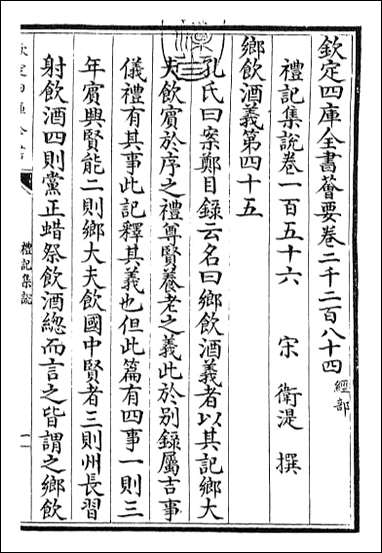 欽定四庫全書薈要卷二千二百八十四 經部
禮記集説卷一百五十六 宋 衛湜 撰
鄉飲酒義第四十五
孔氏曰案鄭目錄云名曰鄉飲酒義者以其記鄉大
夫飲賓於庠序之禮尊賢養老之義此於别錄屬吉事
儀禮有其事此記釋其義也但此篇有四事一則三
年賓興賢能二則鄉大夫飲國中賢者三則州長習
射飲酒四則黨正蜡祭飲酒總而言之皆謂之鄉飲
禮記集説